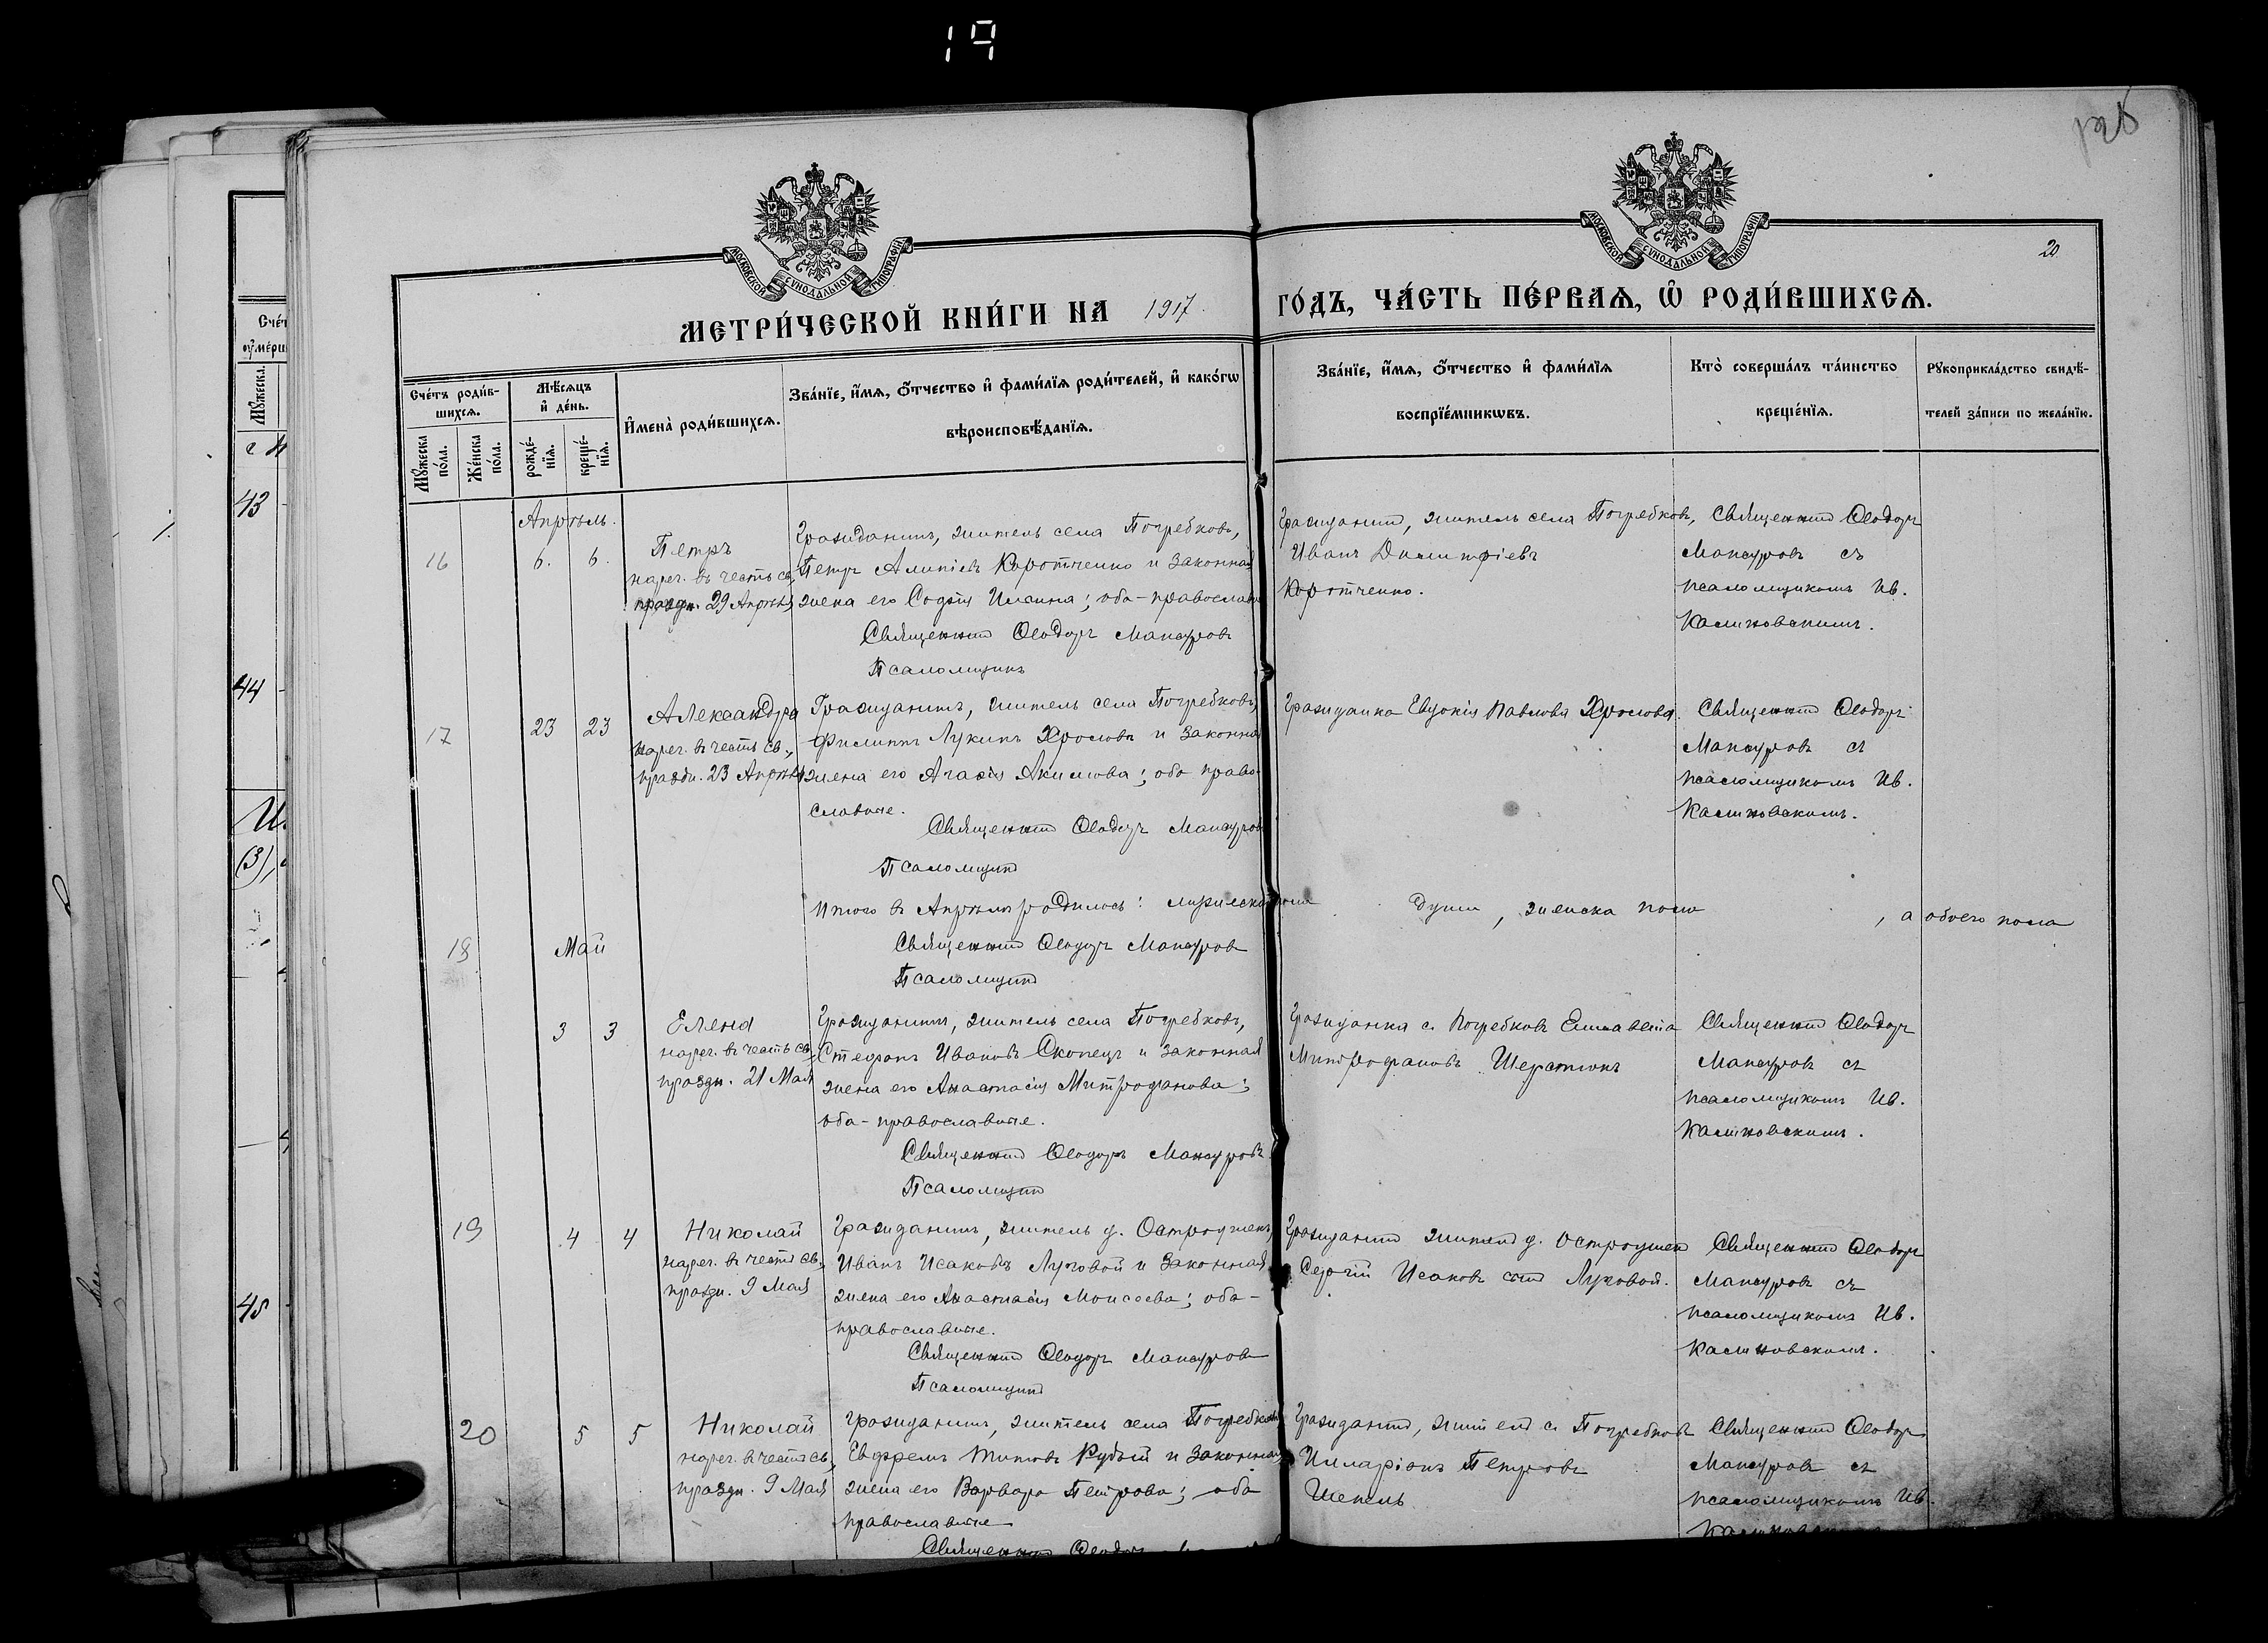 19
128
20
МОСКОВСКОЙ СѴНОДАЛЬНОЙ ТИПОГРАФІИ
МОСКОВСКОЙ СѴНОДАЛЬНОЙ ТИПОГРАФІИ
МЕТРИ́ЧЕСКОЙ КНИ́ГИ НА 1917 ГО́ДЪ, ЧА́СТЬ ПЕ́РВАѦ, Ѽ РОДИ́ВШИХСѦ.
Сче́тъ роди́в-
шихсѧ.
Мꙋжеска
по́ла.
Же́нска
по́ла.
Мѣ́сѧцъ
и҆ де́нь.
рожде́-
нїѧ.
креще́-
нїѧ.
И҆мена̀ роди́вшихсѧ.
Зва́нїе, и҆́мѧ, ѻ҆́тчество и҆ фами́лїѧ роди́телей, и҆ како́гѡ
вѣроисповѣ́данїѧ.
Зва́нїе, и҆́мѧ, ѻ҆́тчество и҆ фами́лїѧ
воспрїе́мникѡвъ.
Кто̀ соверша́лъ та́инство
креще́нїѧ.
Рꙋкоприкла́дство свидѣ́-
телей за́писи по жела́нїю.
Апрѣль.
16
6. 6.
Петръ
нареч. въ честь св.,
праздн. 29 Апрѣля
Гражданинъ, житель села Погребковъ,
Петръ Алипіевъ Коротченко и законная
жена его Софія Ильина; оба - православн
Священникъ Ѳеодоръ Мансуровъ
Псаломщикъ
Гражданинъ, житель села Погребковъ,
Иванъ Димитріевъ
Коротченко.
Священникъ Ѳеодоръ
Мансуровъ съ
псаломщикомъ Ив.
Калиновскимъ.
17
23 23
Александра
нареч. въ честь св.,
праздн. 23 Апрѣля
Гражданинъ, житель села Погребковъ,
Филиппъ Лукинъ Хролова и законная
жена его Агафія Акимова; оба право-
славные.
Священникъ Ѳеодоръ Мансуровъ
Псаломщикъ
Гражданка Евдокія Павлова Хролова.
Священникъ Ѳеодоръ
Мансуровъ съ
псаломщикомъ Ив.
Калиновскимъ.
Итого въ Апрѣлѣ родилось: мужеска пола душъ, женска пола , а обоего пола
Священникъ Ѳеодоръ Мансуровъ
Псаломщикъ
18
Май
3 3
Елена
нареч. въ честь св.,
праздн. 21 Мая
Гражданинъ, житель села Погребковъ,
Стефанъ Ивановъ Скопецъ и законная
жена его Анастасія Митрофанова;
оба - православные.
Священникъ Ѳеодоръ Мансуровъ
Псаломщикъ
Гражданка с. Погребковъ Елисавета
Митрофановъ Шерстюкъ
Священникъ Ѳеодоръ
Мансуровъ съ
псаломщикомъ Ив.
Калиновскимъ.
19
4 4
Николай
нареч. въ честь св.,
праздн. 9 Мая
Гражданинъ, житель д. Остроушекъ,
Иванъ Исаковъ Луговой и законная
жена его Анастасія Моисеева; оба -
православные.
Священникъ Ѳеодоръ Мансуровъ
Псаломщикъ
Гражданинъ житель д. Остроушекъ
Сергій Исаковъ сынъ Луговой.
Священникъ Ѳеодоръ
Мансуровъ съ
псаломщикомъ Ив.
Калиновскимъ.
20
5 5
Николай
нареч. въ честь св.,
праздн. 9 Мая
Гражданинъ, житель села Погребковъ
Евфремъ Титовъ Рубый и законная
жена его Варвара Петрова; оба
православные
Священникъ Ѳеодоръ
Гражданинъ, житель с. Погребковъ
Илларіонъ Петровъ
Шепель
Священникъ Ѳеодоръ
Мансуровъ съ
псаломщикомъ Ив.
Калиновскимъ
Сче́т
ᲂу҆ме́рш
Мꙋжеска.
43
44
(3),
45